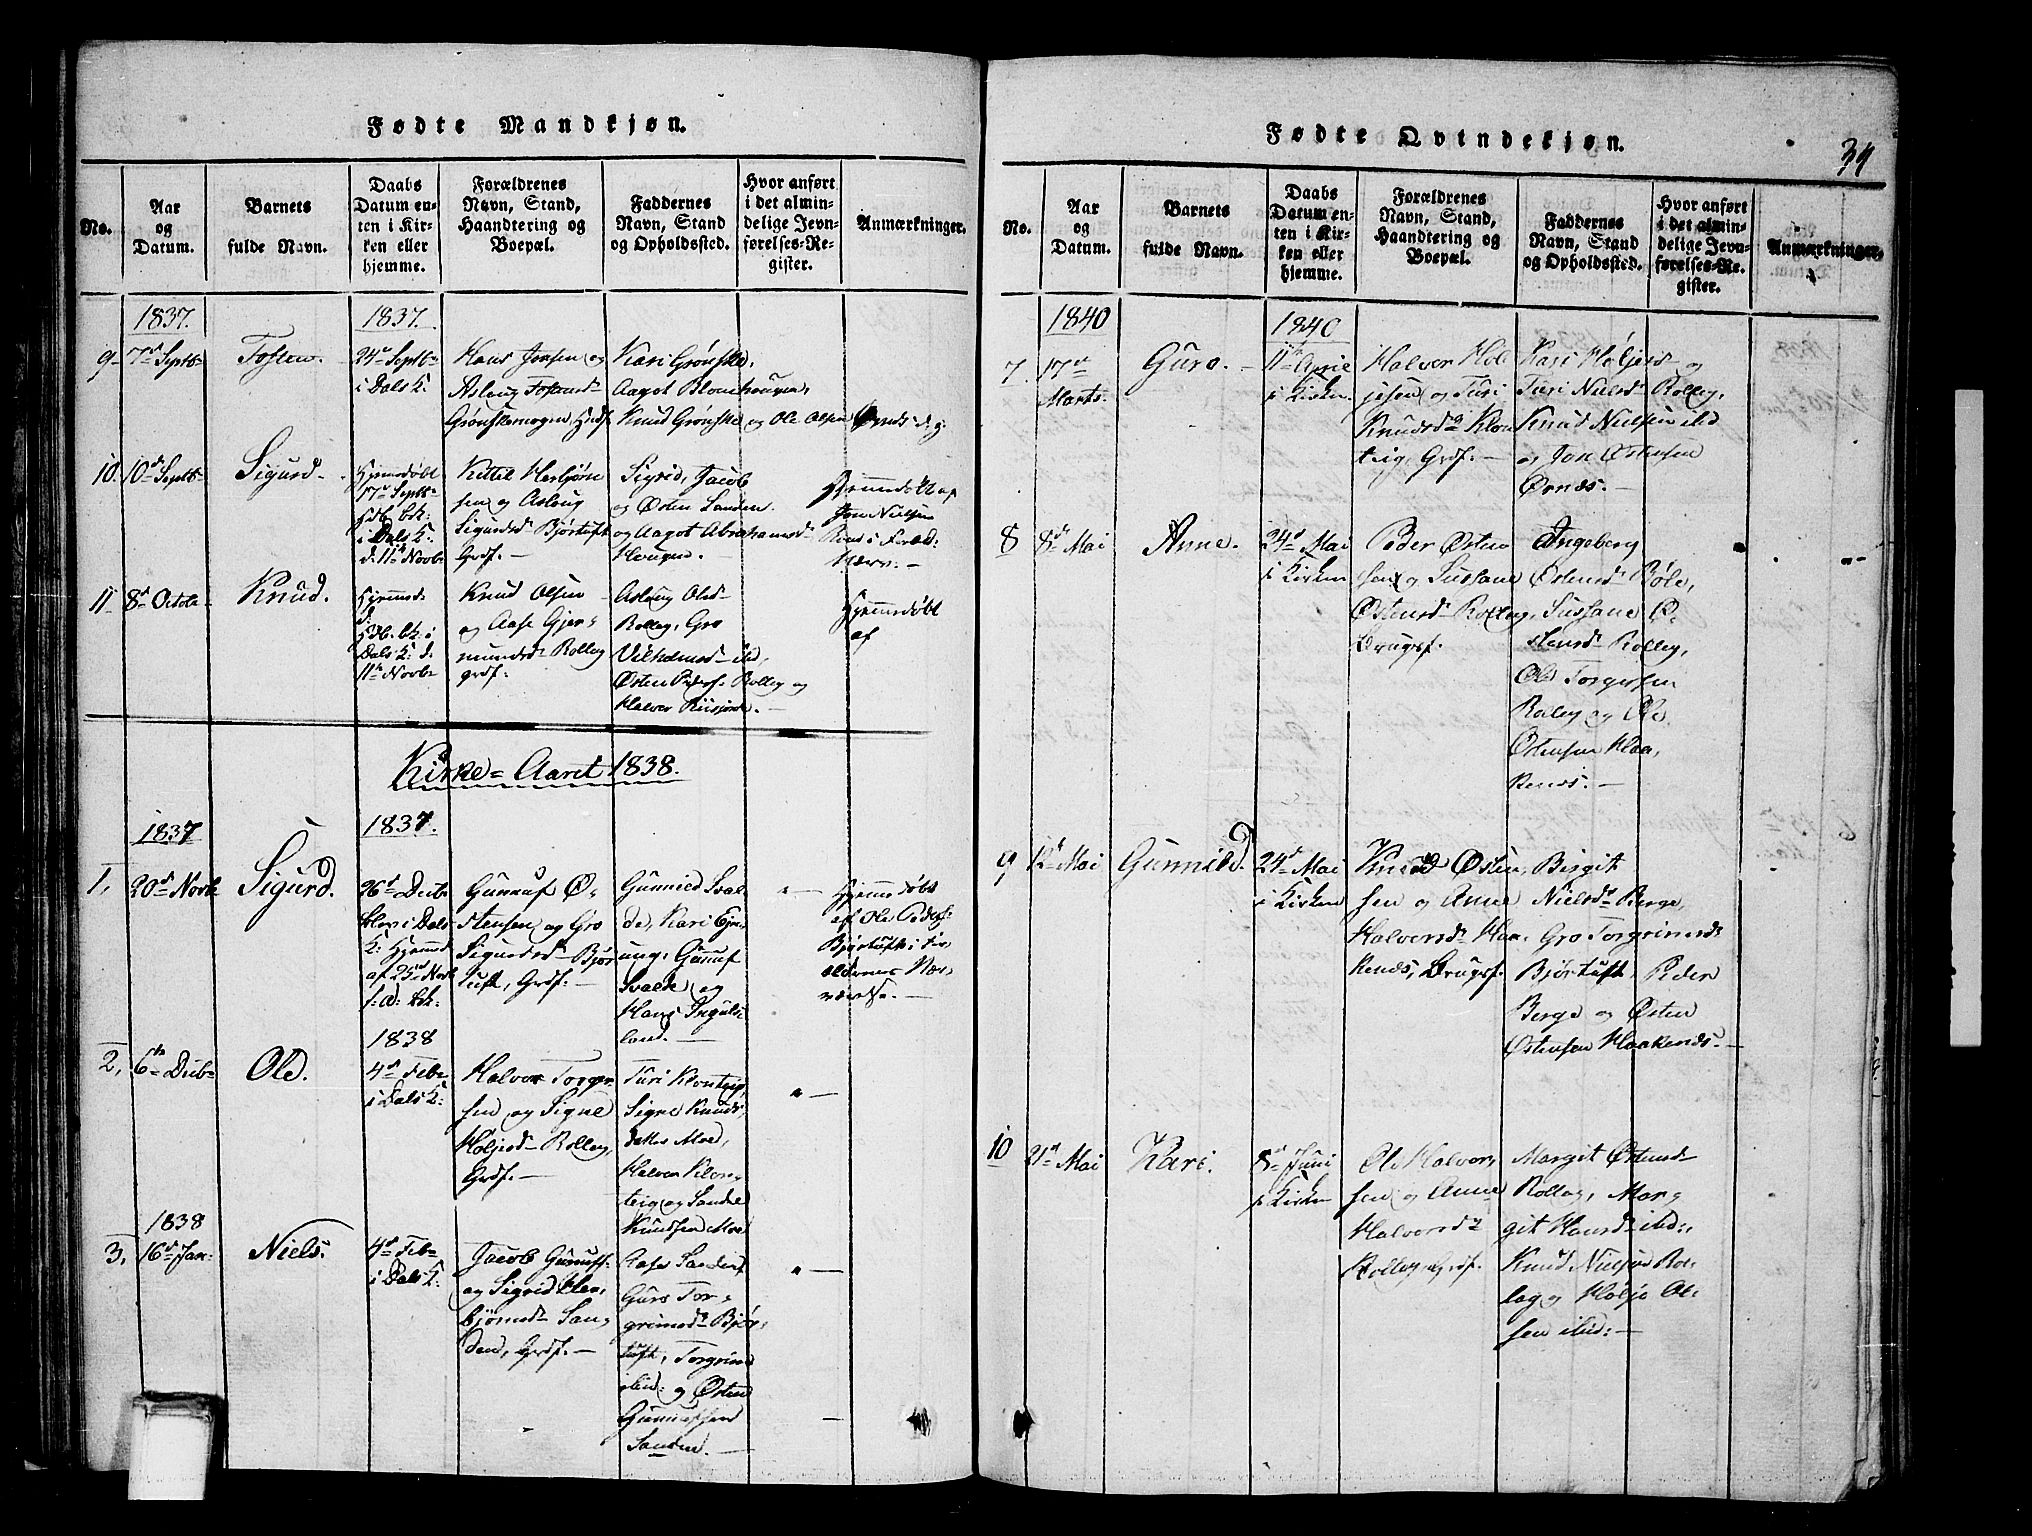 Fødte Mandkjøn.
No.
Aar
og
Datum.
Barnets
fulde Navn.
Daabs
Datum en-
ten i Kir-
ken eller
hjemme.
Forældrenes
Navn, Stand,
Haandtering og
Boepæl.
Faddernes
Navn, Stand
og Opholdssted.
Hvor anført
i det almin-
delige Jevn-
førelses-Re-
gister.
Anmærkninger.
1837.
1837.
9
7d Septb
24d Septb
i Dals K.
Hans Jonsen og
Aslaug
Kari Grønflæ,
Aagot
Knud og Ole Olsen
10.
10d Septb
Sigurd
Hjemmedøbt
17d Septb
i Dals K.
d. 11te Novb
Kittil Herbjørn
sen og Aslaug
Sigurdsd Bjørtuft
Grdf.
Sigrid, Jacob
og Østen Sanden
og Aagot Abrahamsd
Haugen.
Jon Nielsen
11
8d Octob
Knud.
Hjemmed
Dals K. d.
11te Novb
Knud Olsen
og Aase Gjer-
mundsd Rollag
grdf.
Aslaug Olsd
Rollag, Gro
Østen Peders. Rollag og
Halvor
Hjemmedøbt
af
Kirke-Aaret 1838.
1837
1837.
1.
20d Novb
Sigurd.
26d Decb
blev i Dals
K. Hjemmed
af 25d Novb
Gunnuf Ø-
stensen og Gro
Sigurdsd Bjør
tuft, Grdf.
Gunnild Sval-
de, Kari
Gunnuf
Svalde og
Hans Inguls-
land.
Hjemmedøbt
af Ole Peders.
Bjørtuft i For-
ældrenes Nær-
værelse.
1838
2,
6te Decb
Ole.
4d Feb
i Dals K:
Halvor Torger
sen og Signe
Høljesd Rollag,
Grdf.
Turi Klonteig,
Signe Knuds-
datter Moe,
Halvor Klon-
teig og
Knudsen Moe
1838
3,
16d Jan
Niels.
4d Feb
i Dals K:
Jacob Gunnufs.
og Sigrid Her-
bjørnsd San-
den, Grdf.
Aase Sanden,
Guro Tor-
grimsd Bjør-
tuft, Torgrim
ibid: og Østen
Gunnufsen
Sanden.
Fødte Qvindekjøn.
34
No.
Aar
og
Datum.
Barnets
fulde Navn.
Daabs
Datum en-
ten i Kir-
ken eller
hjemme.
Forældrenes
Navn, Stand,
Haandtering og
Boepæl.
Faddernes
Navn, Stand
og Opholdssted.
Hvor anført
i det almin-
delige Jevn-
førelses-Re-
gister.
Anmærkninger.
1840
1840
7.
17d
Marts.
Guro.
11te April
i Kirken
Halvor Høl
jesen og Turi
Knudsdr Klon
teig, Grdf.
Kari Høljesd og
Turi Nielsd Rollag,
Knud Nielsen ibid
og Jon Østensen
Ørnæs.
8
8d Mai
Anne.
24d Mai
i Kirken
Peder Østen
sen og Sussane
Østensd Rollag,
Brugsf.
Ingeborg
Østensd Bøle,
Sussane Ø-
stensd Rollag,
Ole Torgersen
Rollag og Ole
Østensen Haa-
kenæs.
9
12d Mai
Gunnild.
24d Mai
i Kirken
Knud Østen-
sen og Anne
Halvorsd Haa-
kenæs, Brugsf.
Birgit
Nielsdr Berge,
Gro Torgrimsd
Bjørtuft, Peder
Berge og Østen
Østensen Haakenæs.
10
21d Mai
Kari.
8d Juni
i Kirken
Ole Halvor-
sen og Anne
Halvorsdr
Rollag, Grdf.
Margit Østensd
Rollag, Mar-
git Hansd ibid:,
Knud Nielsen Rol-
lag og Hølje Ol-
sen ibid: